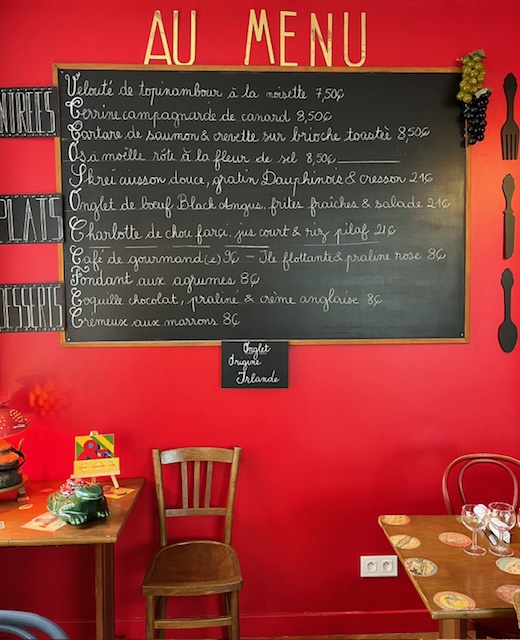 AU MENU
ENTRÉES
Velouté de topinambour à la noisette 7,50€
Terrine campagnarde de canard 8,50€
Tartare de saumon & crevette sur brioche toastée 8,50€
Os à moëlle rôte à la fleur de sel 8,50€
PLATS
Skreï cuisson douce, gratin Dauphinois & cresson 21€
Onglet de bœuf Black Angus, frites fraîches & salade 21€
Charlotte de chou farçi, jus court & riz pilaf 21€
DESSERTS
Café de gourmand(e) 9€ - Île flottante & praline rose 8€
Fondant aux agrumes 8€
Coquille chocolat, praliné & crème anglaise 8€
Crémeux aux marrons 8€
Onglet
Origine
Irlande